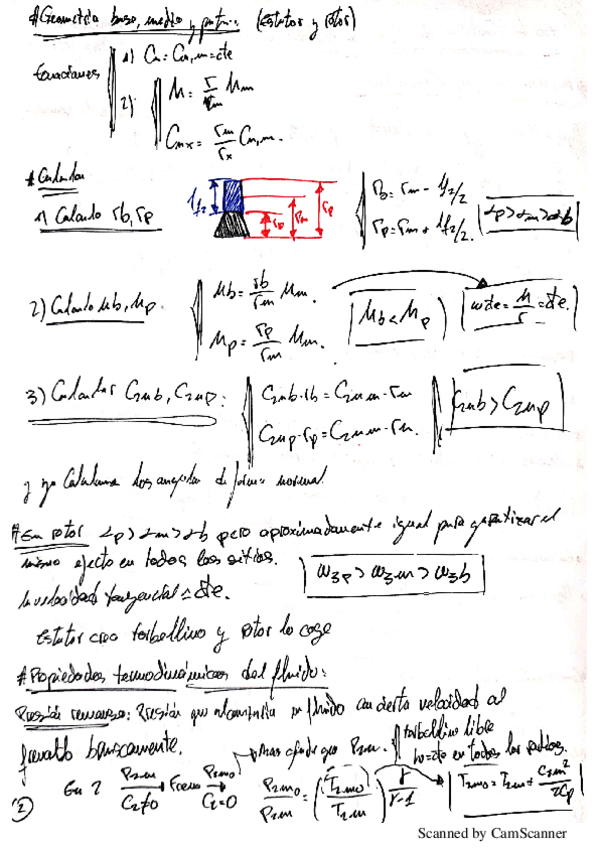 # Geometría base, medio y punta (Estator y rotor)
Ecuaciones 1) Cₐ = Cₐ,m = cte
2) U = r/rm Um
Cux = rm/rx Cu,m.
# Calculos
1) Calculo rb, rp
lf2 rb rm rp
rb = rm - lf2/2
rp = rm + lf2/2.
rp > rm > rb
2) Calculo Ub, Up
Ub = rb/rm Um.
Up = rp/rm Um.
Ub < Up
wde = U/r = cte.
3) Calcular C2ub, C2up:
C2ub·rb = C2um·rm
C2up·rp = C2um·rm.
C2ub > C2up
y ya Calculamos los angulos de forma normal
# En rotor αp > αm > αb pero aproximadamente igual para garantizar el
mismo efecto en todos los sitios.
la velocidad tangencial = cte.
w3p > w3m > w3b
Estator crea torbellino y rotor lo coge
# Propiedades termodinámicas del fluido:
Presión remanso: Presión que alcanzaria un fluido con cierta velocidad al
frenarlo bruscamente.
mas grande que P2m.
torbellino libre
w = cte en todos los radios.
En 2 P2m C2≠0 Freno P2mo C2=0
P2mo/P2m = (T2mo/T2m)^(γ/γ-1)
T2mo = T2m + C2m²/2Cp
2
Scanned by CamScanner